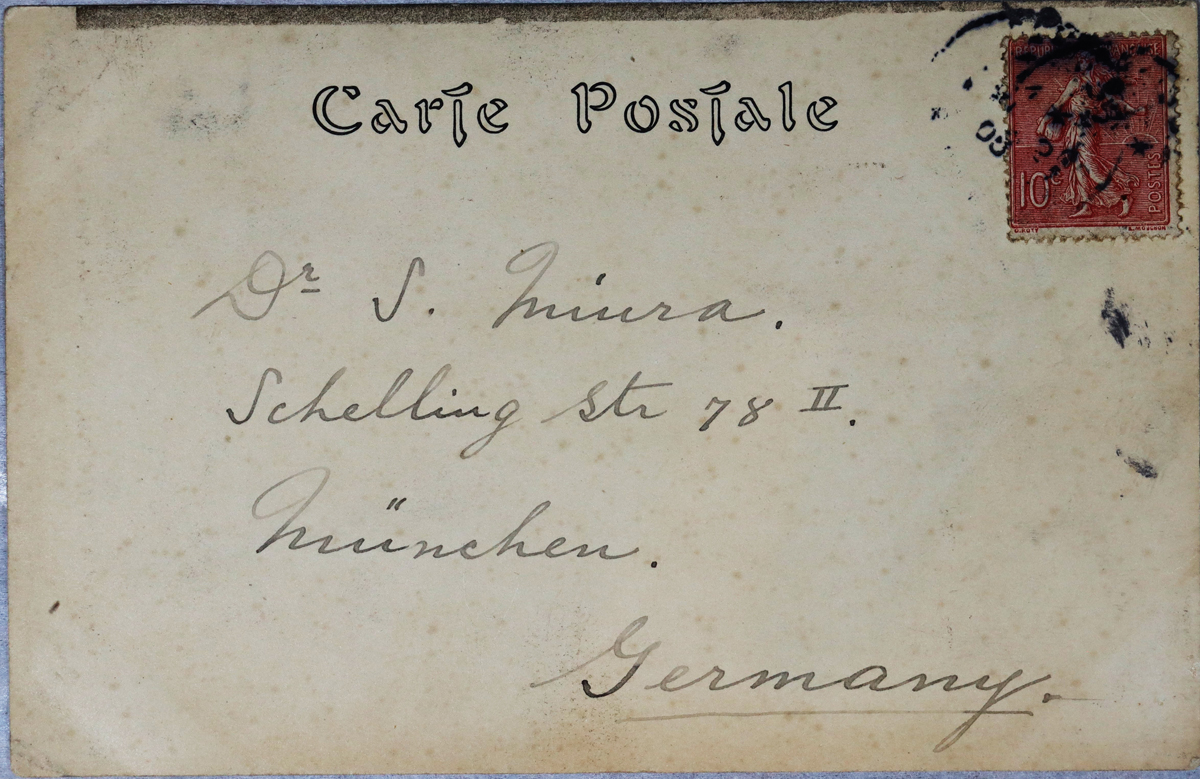 Carte Postale
RÉPUBLIQUE FRANÇAISE
10c
POSTES
O. ROTY
E. MOUCHON
Dr S. Miura.
Schelling Str 78 II.
München.
Germany.